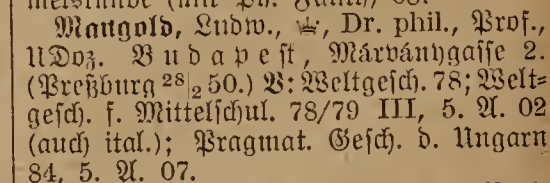 Mangold, Ludw., ♕, Dr. phil., Prof.,
UDoz. Budapest, Márványgasse 2.
(Preßburg 28|2 50.) B: Weltgesch. 78; Welt=
gesch. f. Mittelschul. 78/79 III, 5. A. 02
(auch ital.); Pragmat. Gesch. d. Ungarn
84, 5. A. 07.